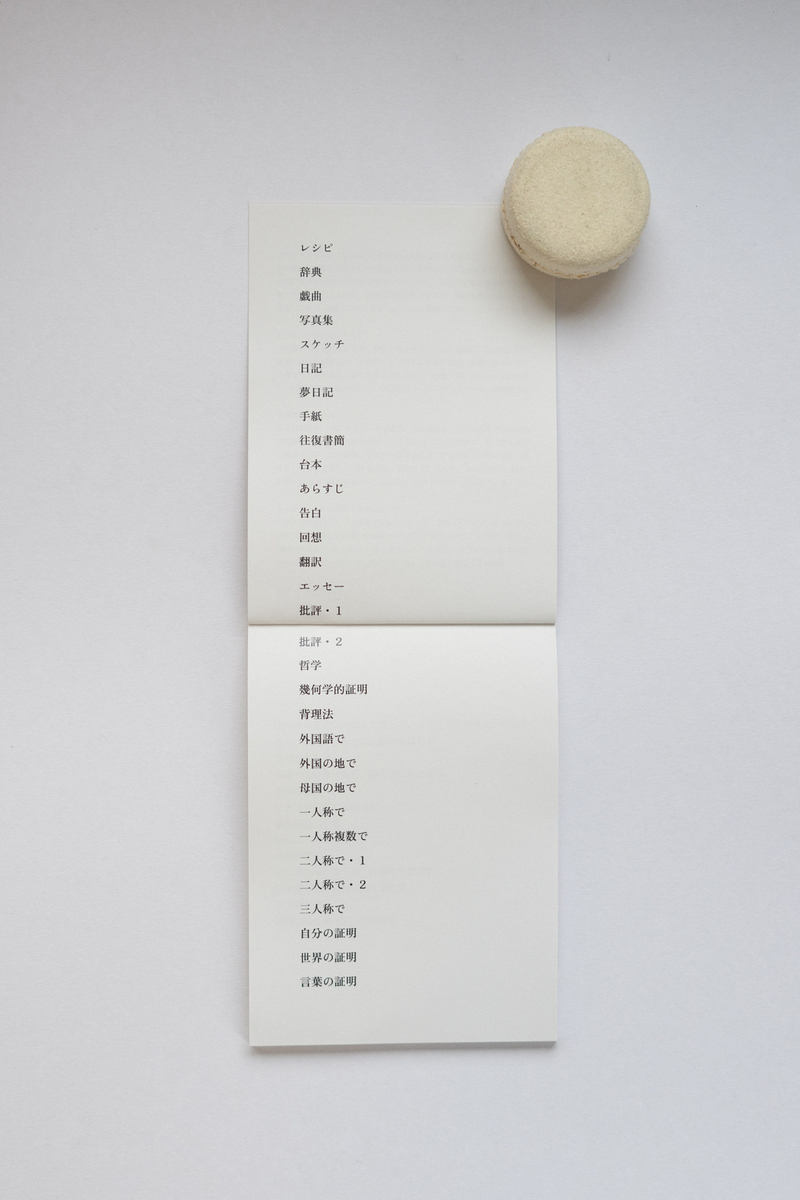 レシピ
辞典
戯曲
写真集
スケッチ
日記
夢日記
手紙
往復書簡
台本
あらすじ
告白
回想
翻訳
エッセー
批評・１
批評・２
哲学
幾何学的証明
背理法
外国語で
外国の地で
母国の地で
一人称で
一人称複数で
二人称で・１
二人称で・２
三人称で
自分の証明
世界の証明
言葉の証明